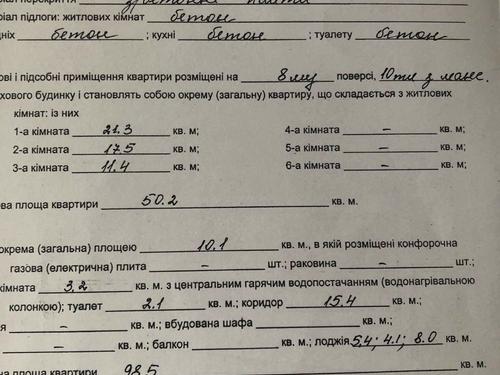 ріал підлоги: житлових кімнат бетон
дніх бетон ; кухні бетон ; туалету бетон
ові і підсобні приміщення квартири розміщені на 8 му поверсі, 10 ти з манс.
хового будинку і становлять собою окрему (загальну) квартиру, що складається з житлових
кімнат: із них
1-а кімната 21.3 кв. м; 4-а кімната – кв. м;
2-а кімната 17.5 кв. м; 5-а кімната – кв. м;
3-а кімната 11.4 кв. м; 6-а кімната – кв. м;
ва площа квартири 50.2 кв. м.
окрема (загальна) площею 10.1 кв. м., в якій розміщені конфорочна
газова (електрична) плита – шт.; раковина – шт.;
кімната 3,2 кв. м. з центральним гарячим водопостачанням (водонагрівальною
колонкою); туалет 2.1 кв. м.; коридор 15.4 кв. м.;
я – кв. м.; вбудована шафа кв. м.;
– кв. м.; балкон кв. м.; лоджія 5,4; 4.1; 8.0 кв. м.
на площа квартири 98.5